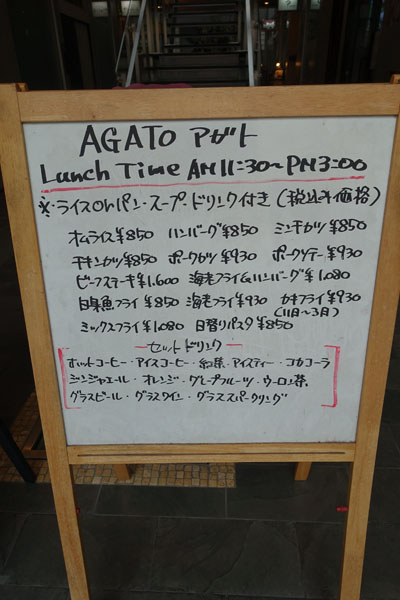 AGATO アガト
Lunch Time AM11:30~PM3:00
※・ライスorパン・スープ・ドリンク付き(税込み価格)
オムライス¥850 ハンバーグ¥850 ミンチカツ¥850
チキンカツ¥850 ポークカツ¥930 ポークソテー¥930
ビーフステーキ¥1.600 海老フライ&ハンバーグ¥1,080
白身魚フライ¥850 海老フライ¥930 カキフライ¥930
(11月~3月)
ミックスフライ¥1,080 日替りパスタ¥850
ーセットドリンクー
ホットコーヒー・アイスコーヒー・紅茶・アイスティー・コカコーラ
ジンジャエール・オレンジ・グレープフルーツ・ウーロン茶
グラスビール・グラスワイン・グラススパークリング